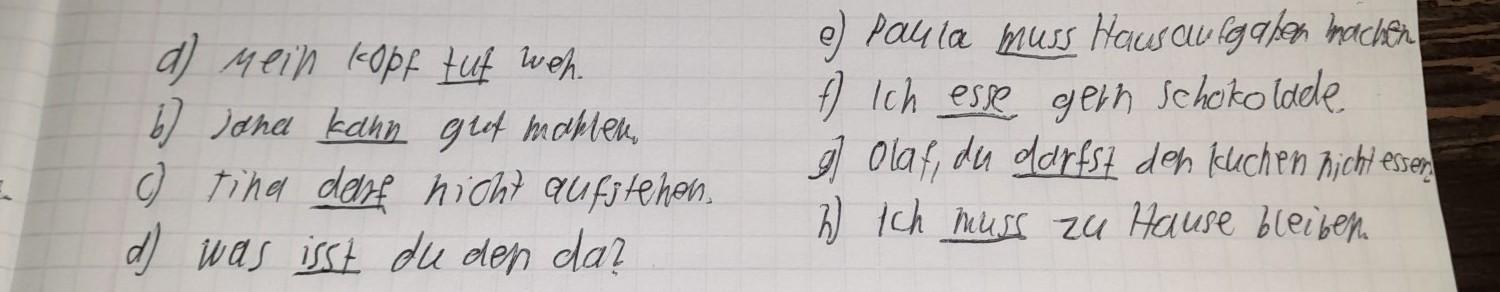 a) Mein Kopf tut weh.
b) Jana kann gut mahlen.
c) Tina darf nicht aufstehen.
d) Was isst du den da?
e) Paula muss Hausaufgaben machen
f) Ich esse gern Schokolade.
g) Olaf, du darfst den Kuchen nicht essen.
h) Ich muss zu Hause bleiben.